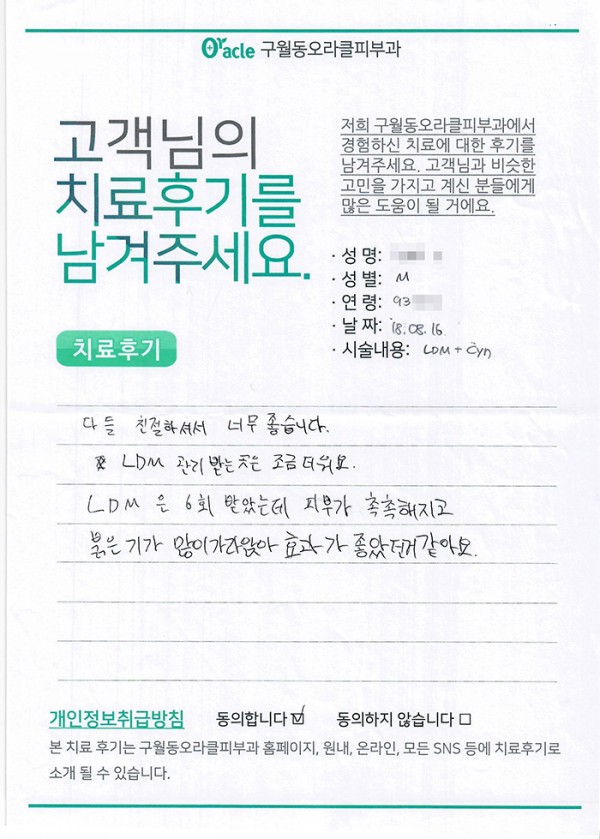 Oracle 구월동오라클피부과
고객님의
치료후기를
남겨주세요.
저희 구월동오라클피부과에서
경험하신 치료에 대한 후기를
남겨주세요. 고객님과 비슷한
고민을 가지고 계신 분들에게
많은 도움이 될 거에요.
· 성 명:
· 성 별: M
· 연 령: 93
· 날 짜: '18.08.16
· 시술내용: LDM + Cyn
치료후기
다들 친절하셔서 너무 좋습니다.
LDM 관리 받는 곳은 조금 더워요.
LDM 은 6회 받았는데 피부가 촉촉해지고
붉은기가 많이가라앉아 효과가 좋았던거같아요.
개인정보취급방침 동의합니다 ☑ 동의하지 않습니다 ☐
본 치료 후기는 구월동오라클피부과 홈페이지, 원내, 온라인, 모든 SNS 등에 치료후기로
소개 될 수 있습니다.